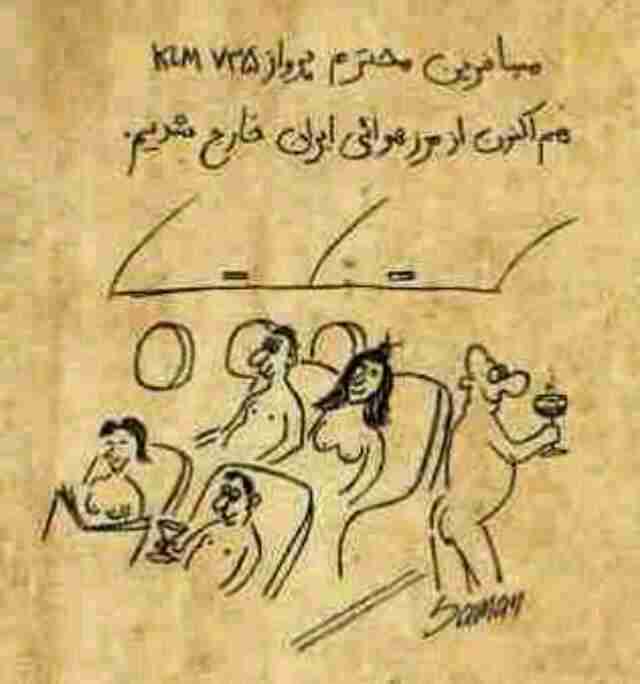 مسافرین محترم پرواز ۷۳۵ KLM
هم اکنون از مرز هوائی ایران خارج شدیم.
Saman